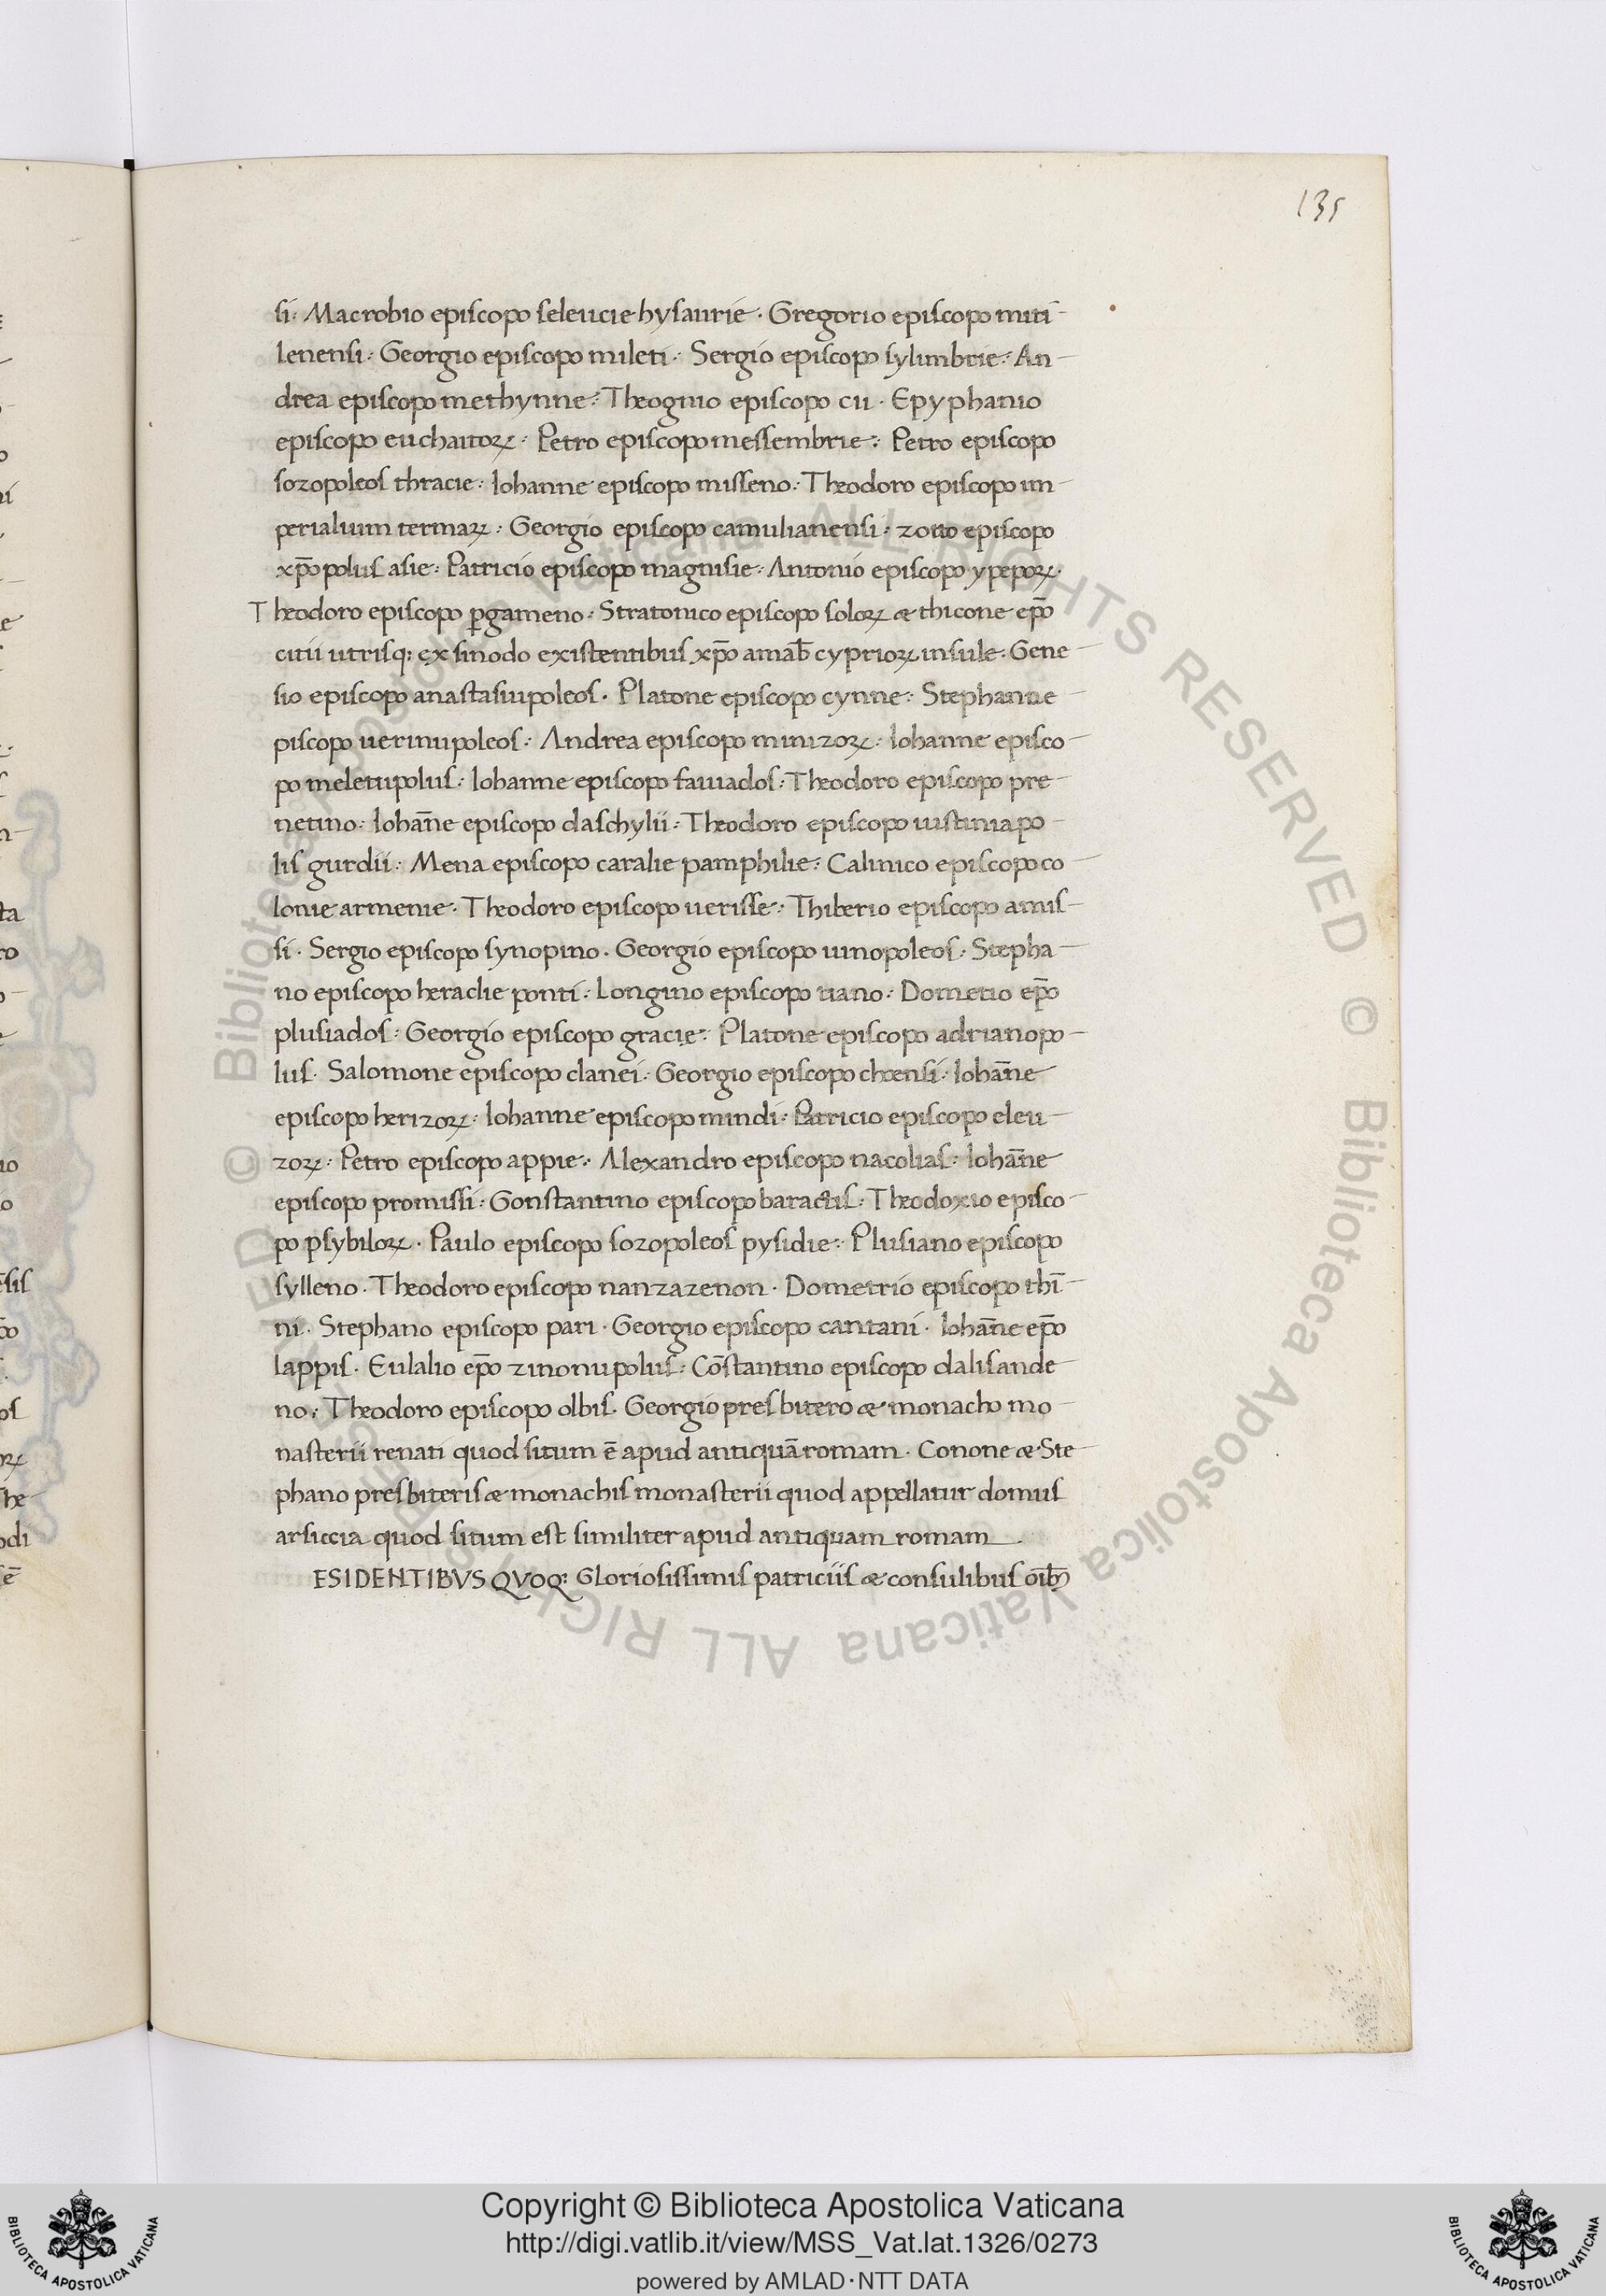 135
si: Macrobio episcopo seleucie hysaurie. Gregorio episcopo miti-
lenensi: Georgio episcopo mileti. Sergio episcopo sylimbrie: An-
drea episcopo methynne: Theognio episcopo cii. Epyphanio
episcopo euchaitoꝝ: Petro episcopo messembrie: Petro episcopo
sozopoleos thracie: Iohanne episcopo misseno: Theodoro episcopo im-
perialium termaꝝ: Georgio episcopo camulianensi: zoito episcopo
xp̄opolus asie: Patricio episcopo magnisie: Antonio episcopo ypepoꝝ.
Theodoro episcopo ꝑgameno: Stratonico episcopo soloꝝ æ thicone ep̄o
citii utrisq: ex sinodo existentibus xp̄o amab̄ cyprioꝝ insule. Gene-
sio episcopo anastasiupoleos. Platone episcopo cynne: Stephanne-
piscopo uerinupoleos: Andrea episcopo minizoꝝ: Iohanne episco-
po meletupolus: Iohanne episcopo fauiados: Theodoro episcopo pre-
netino: Iohan̄e episcopo daschylii: Theodoro episcopo iustiniapo-
lis gurdii: Mena episcopo caralie pamphilie: Calinico episcopo co-
lonie armenie. Theodoro episcopo uerisse: Thiberio episcopo amis-
si. Sergio episcopo synopino. Georgio episcopo uinopoleos: Stepha-
no episcopo heraclie ponti: Longino episcopo tiano: Dometio ep̄o
plusiados: Georgio episcopo gracie: Platone episcopo adrianopo-
lus. Salomone episcopo clanei: Georgio episcopo choensi: Iohan̄e
episcopo herizoꝝ: Iohanne episcopo mindi: Patricio episcopo eleu-
zoꝝ: Petro episcopo appie: Alexandro episcopo nacolias: Iohan̄e
episcopo promissi: Gonstantino episcopo baractis: Theodoxio episco-
po psybiloꝝ. Paulo episcopo sozopoleos pysidie: Plusiano episcopo
sylleno. Theodoro episcopo nanzazenon. Dometrio episcopo thi-
ni. Stephano episcopo pari. Georgio episcopo cantani. Iohan̄e ep̄o
lappis. Eulalio ep̄o zinonupolus: Cōstantino episcopo dalisande-
no: Theodoro episcopo olbis. Georgio presbitero æ monacho mo-
nasterii renati quod situm ē apud antiquā romam. Conone æ Ste-
phano presbiteris æ monachis monasterii quod appellatur domus
arsiccia quod situm est similiter apud antiquam romam.
ESIDENTIBVS QVOQ: Gloriosissimis patriciis æ consulibus oīb;
Copyright © Biblioteca Apostolica Vaticana
http://digi.vatlib.it/view/MSS_Vat.lat.1326/0273
powered by AMLAD·NTT DATA